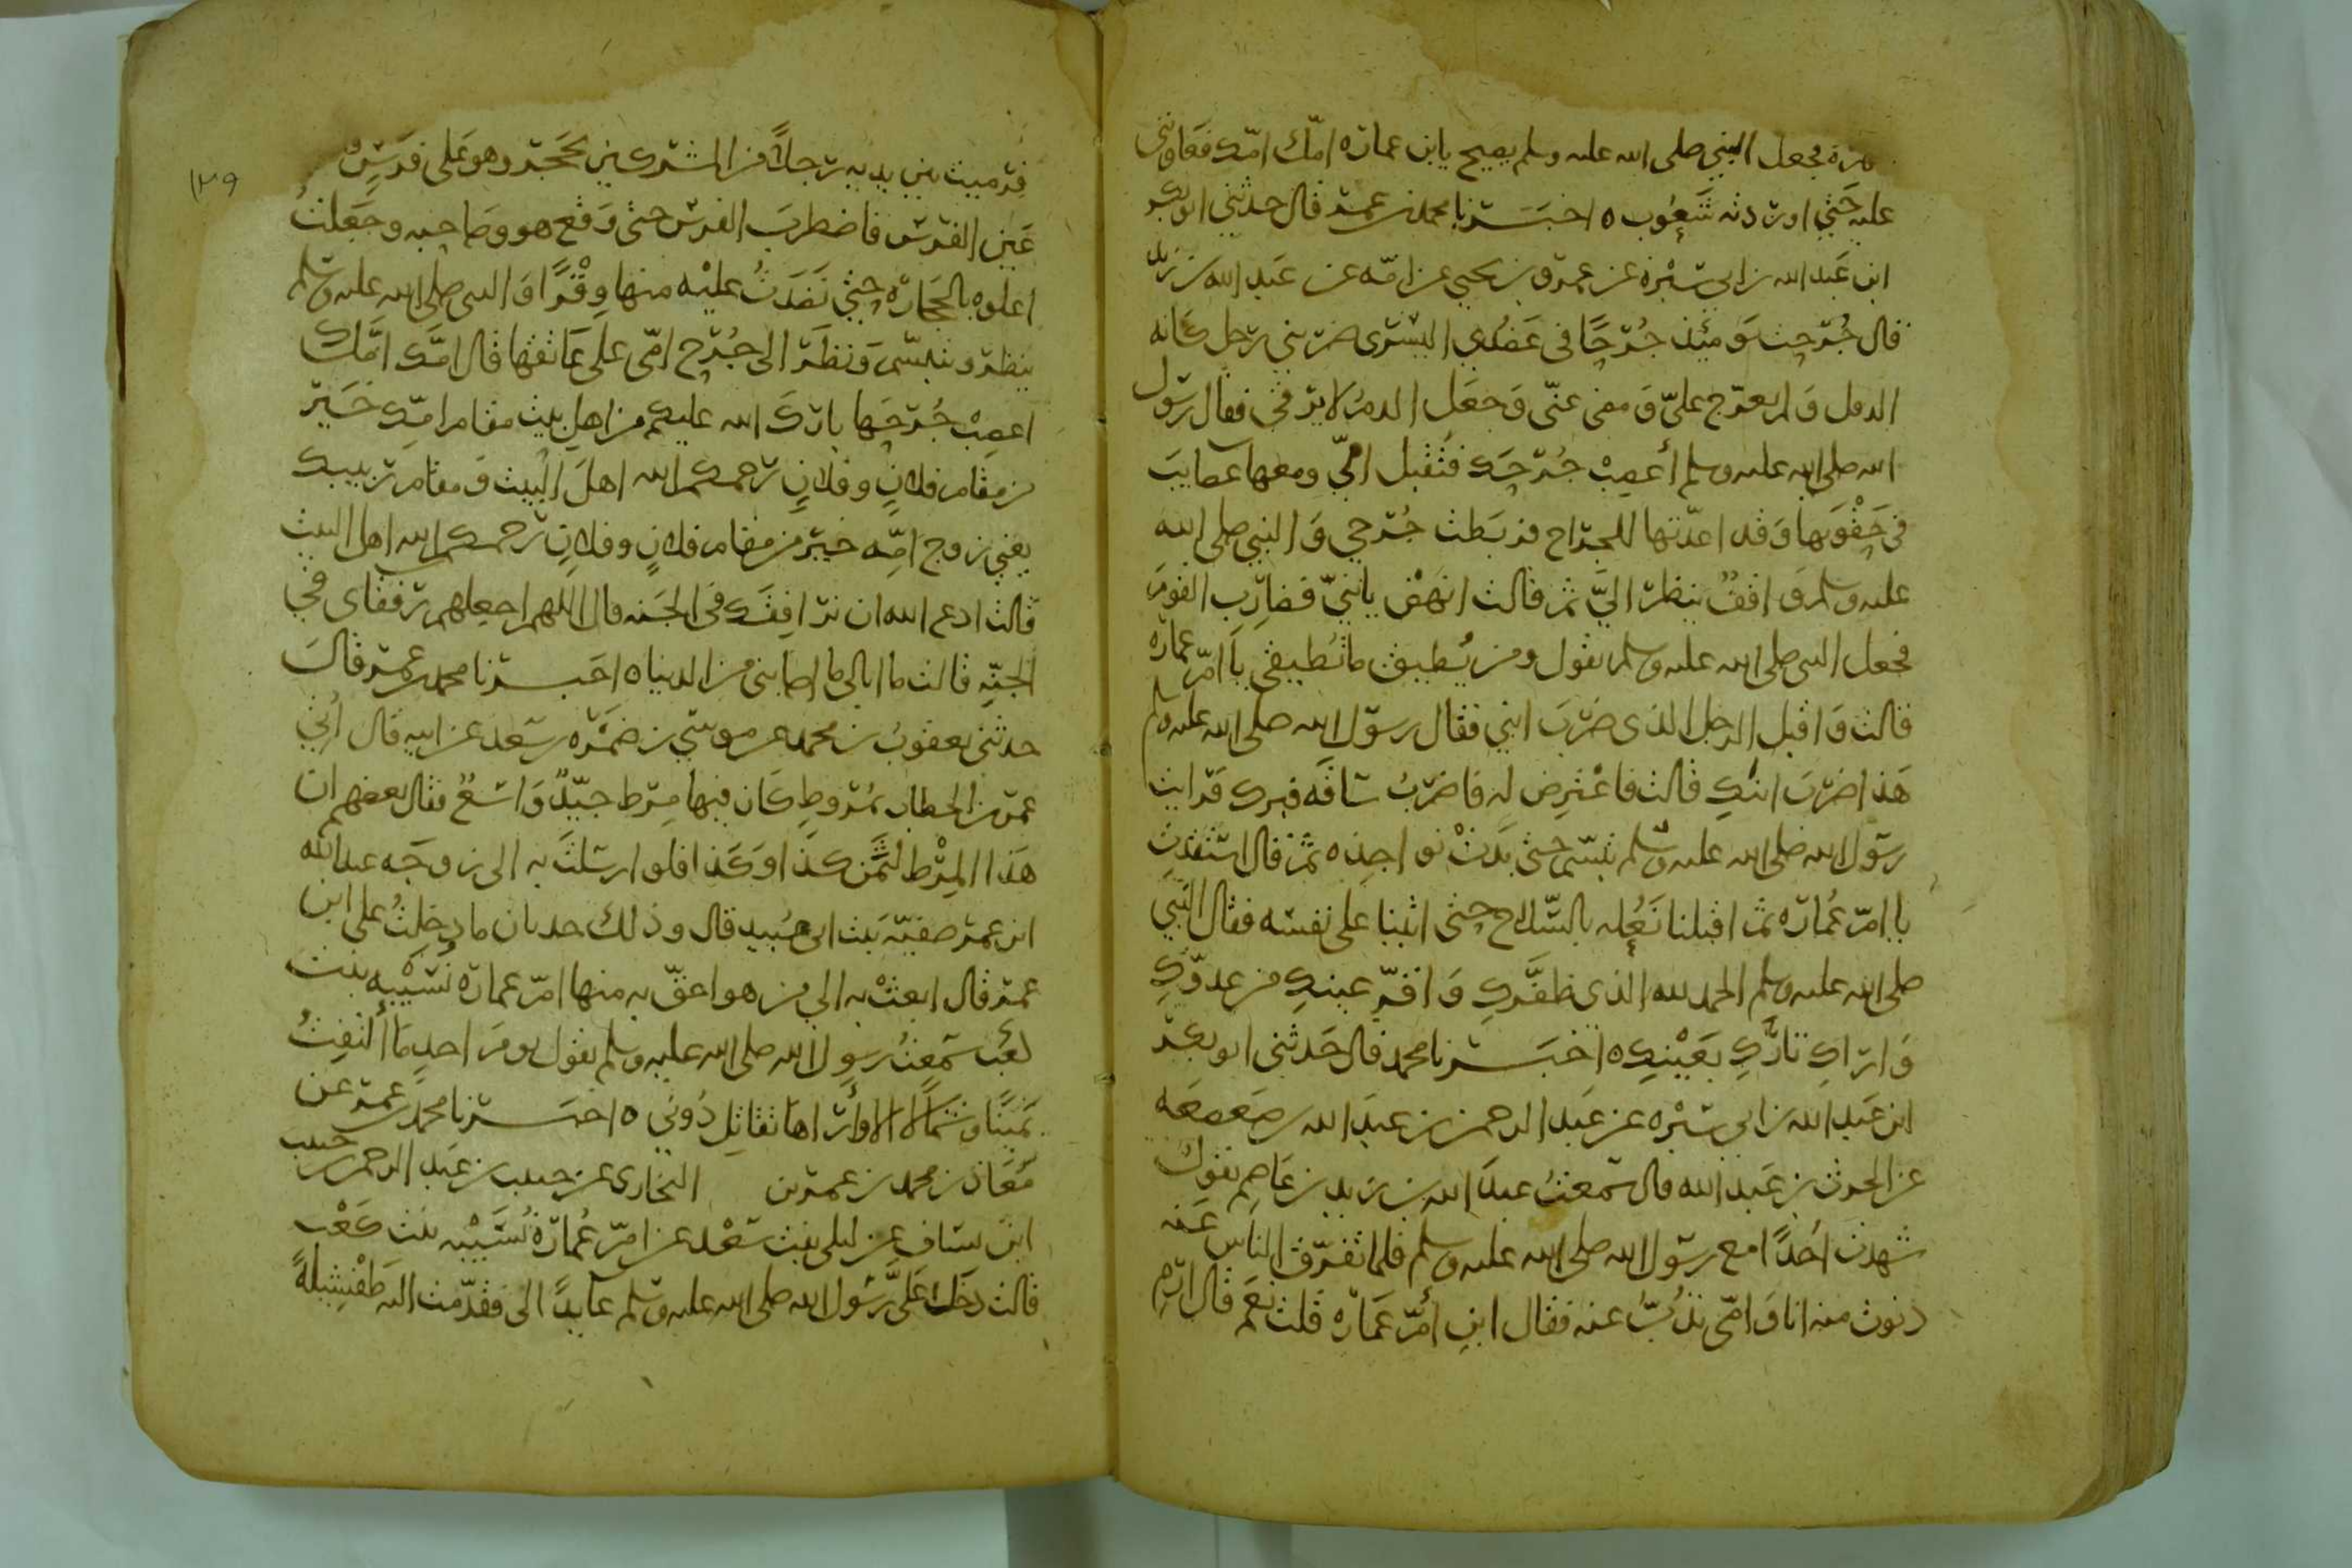 مرة فجعل النبي صلى الله عليه وسلم يصيح يا بن عمارة امّك امّك فعاونتني
عليه حتى اوردته شَعُوب ه اخبرنا محمد بن عمر قال حدثني ابو بكر
ابن عَبد الله بن ابي سَبْرة عن عمرو بن يحيى عن امّه عن عَبد الله بن زيد
قال جُرحت يومئذ جُرحًا في عَضُدي اليسرى ضربني رجل كانه
الرقل وَلم يعرّج عليّ وَمضى عنّي وَجعَل الدمُ لا يرقى فقال رسول
الله صلى الله عليه وسلم أعصِبْ جُرحَك فتُقبل امّي ومعها عصايبَ
في حَقْوَيها وَقد اعدّتها للجراح فربَطت جُرحي وَالنبي صلى الله
عليه وسلم وَاقفٌ ينظر اليَّ ثم قالت انهَضْ يا بنيّ فضارِبِ القومَ
فجعل النبي صلى الله عليه وسلم يقول ومن يُطيق ما تُطيقي يا امّ عمارة
قالت وَاقبل الرجل الذي ضرَبَ ابني فقال رسول الله صلى الله عليه وسلم
هَذا ضرَبَ ابنكِ قالت فاعْترِض له فاضرَبُ سَاقَه فبرك فرايت
رسول الله صلى الله عليه وسلم تبسّم حتى بَدتْ نواجذه ثم قال استقدتِ
يا امّ عُمارة ثم اقبلنا نَعُله بالسّلاح حتى اتينا على نفسه فقال النبي
صلى الله عليه وسلم الحمد لله الذي ظفَّركِ وَاقرّ عينكِ من عدوّكِ
وَاراكِ ثاركِ بعَيْنِك ه اخبرنا محمد قال حَدثني ابو بكر
ابن عَبد الله بن ابي سَبْرة عن عَبد الرحمن بن عبد الله بن صَعصعَه
عن الحرث بن عَبد الله قال سَمعتُ عبدَ الله بن زيد بن عَاصِم يَقول
شهدتُ اُحُدًا مع رسول الله صلى الله عليه وسلم فلما تفرّق الناس عَنه
دنوت منه انا وَامّي نذُبّ عنه فقال ابن أمّ عمارة قلت نعَم قال ارمِ
١٢٩
فرميت بين يديه رجلاً من المشركين بحَجر وهو عَلى فرَسٍ
عَين الفرس فاضطربَ الفرس حتى وَقع هو وصَاحبه وجَعلتُ
اعلوه بالحجَارة حتى نَضَدتُ عليْه منها وِقْرًا وَالنبي صلى الله عليه وسلم
ينظر ويتبسّم وَنظَر الى جُرْح امّي على عَاتقها قال امَّك امَّك
اعصِبْ جُرحَها بارَكَ الله عليكم من اهلِ بيت مقام امّك خَيرٌ
من مقام فلانٍ وفلانٍ رحمكم الله اهلَ البيت وَمقام ربيبك
يعني زوج امّه خيرٌ من مقام فلانٍ وفلانٍ رحمكم الله اهل البيت
قالت ادع الله ان نرافقك في الجَنه قال اللهم اجعلهم رفقاي في
الجنّه قالت ما ابالي ما اصابني من الدنيا ه اخبرنا محمد بن عمر قالَ
حدثني يعقوبُ بن محمد عن موسى بن ضَمْرة بن سعيد عن ابيه قال اُتي
عمر بن الخطاب بمُروطٍ كان فيها مِرط جيّدٌ وَاسعٌ فقال بعضهم ان
هَذا المِرْط لثمن كذا وَكَذا فلو ارسلتَ به الى زوجَه عبد الله
ابن عمر صفيّه بَنت ابي عُبيد قال وذلك حدثان ما دخلَتُ على ابن
عمر قال ابعثْ به الي من هو احقّ به منها امّ عمارة نسَيْبه بنت
كعب سَمعتُ رسول الله صلى الله عليه وسلم يقول يومَ احدٍ ما التفتُّ
يَمينًا وَشمالاً الا وأراها تقاتل دُوني ه اخبرنا محمد بن عمر عن
مُعَاذ بن محمد بن عمر بن النخاري عن حبيب بن عَبد الرحمن بن خبيب
ابن يساف عن ليلى بنت سَعْد عن امّ عُمارة نُسَيْبه بنت كعْب
قالت دخَل عَليَّ رَسُول الله صلى الله عليه وسلم عايدًا الي فقدّمت اليه طَفْشيلةً